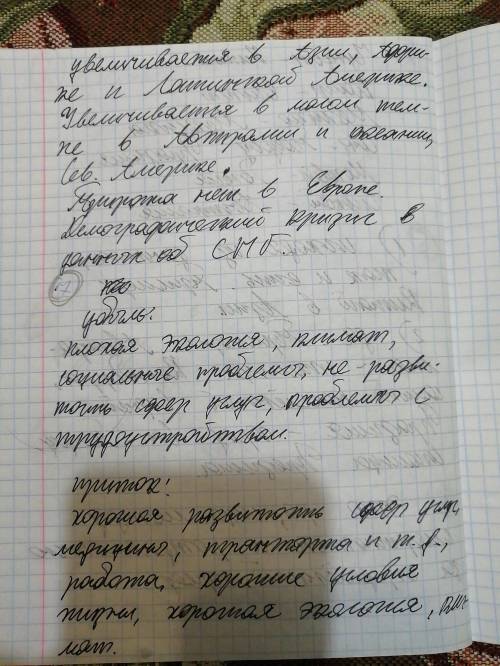 увеличивается в Азии, Афри-
ке и Латинской Америке.
Увеличивается в малом тем-
пе в Австралии и океании,
Сев. Америке.
Прироста нет в Европе.
Демографический кризис в
данных об СНГ.
убыль:
плохая экология, климат,
социальные проблемы, не разви-
тость сфер услуг, проблемы с
трудоустройством.
приток:
хорошая развитость сфер услуг,
медицины, транспорта и т.д.,
работа, хорошие условия
жизни, хорошая экология, кли
мат.